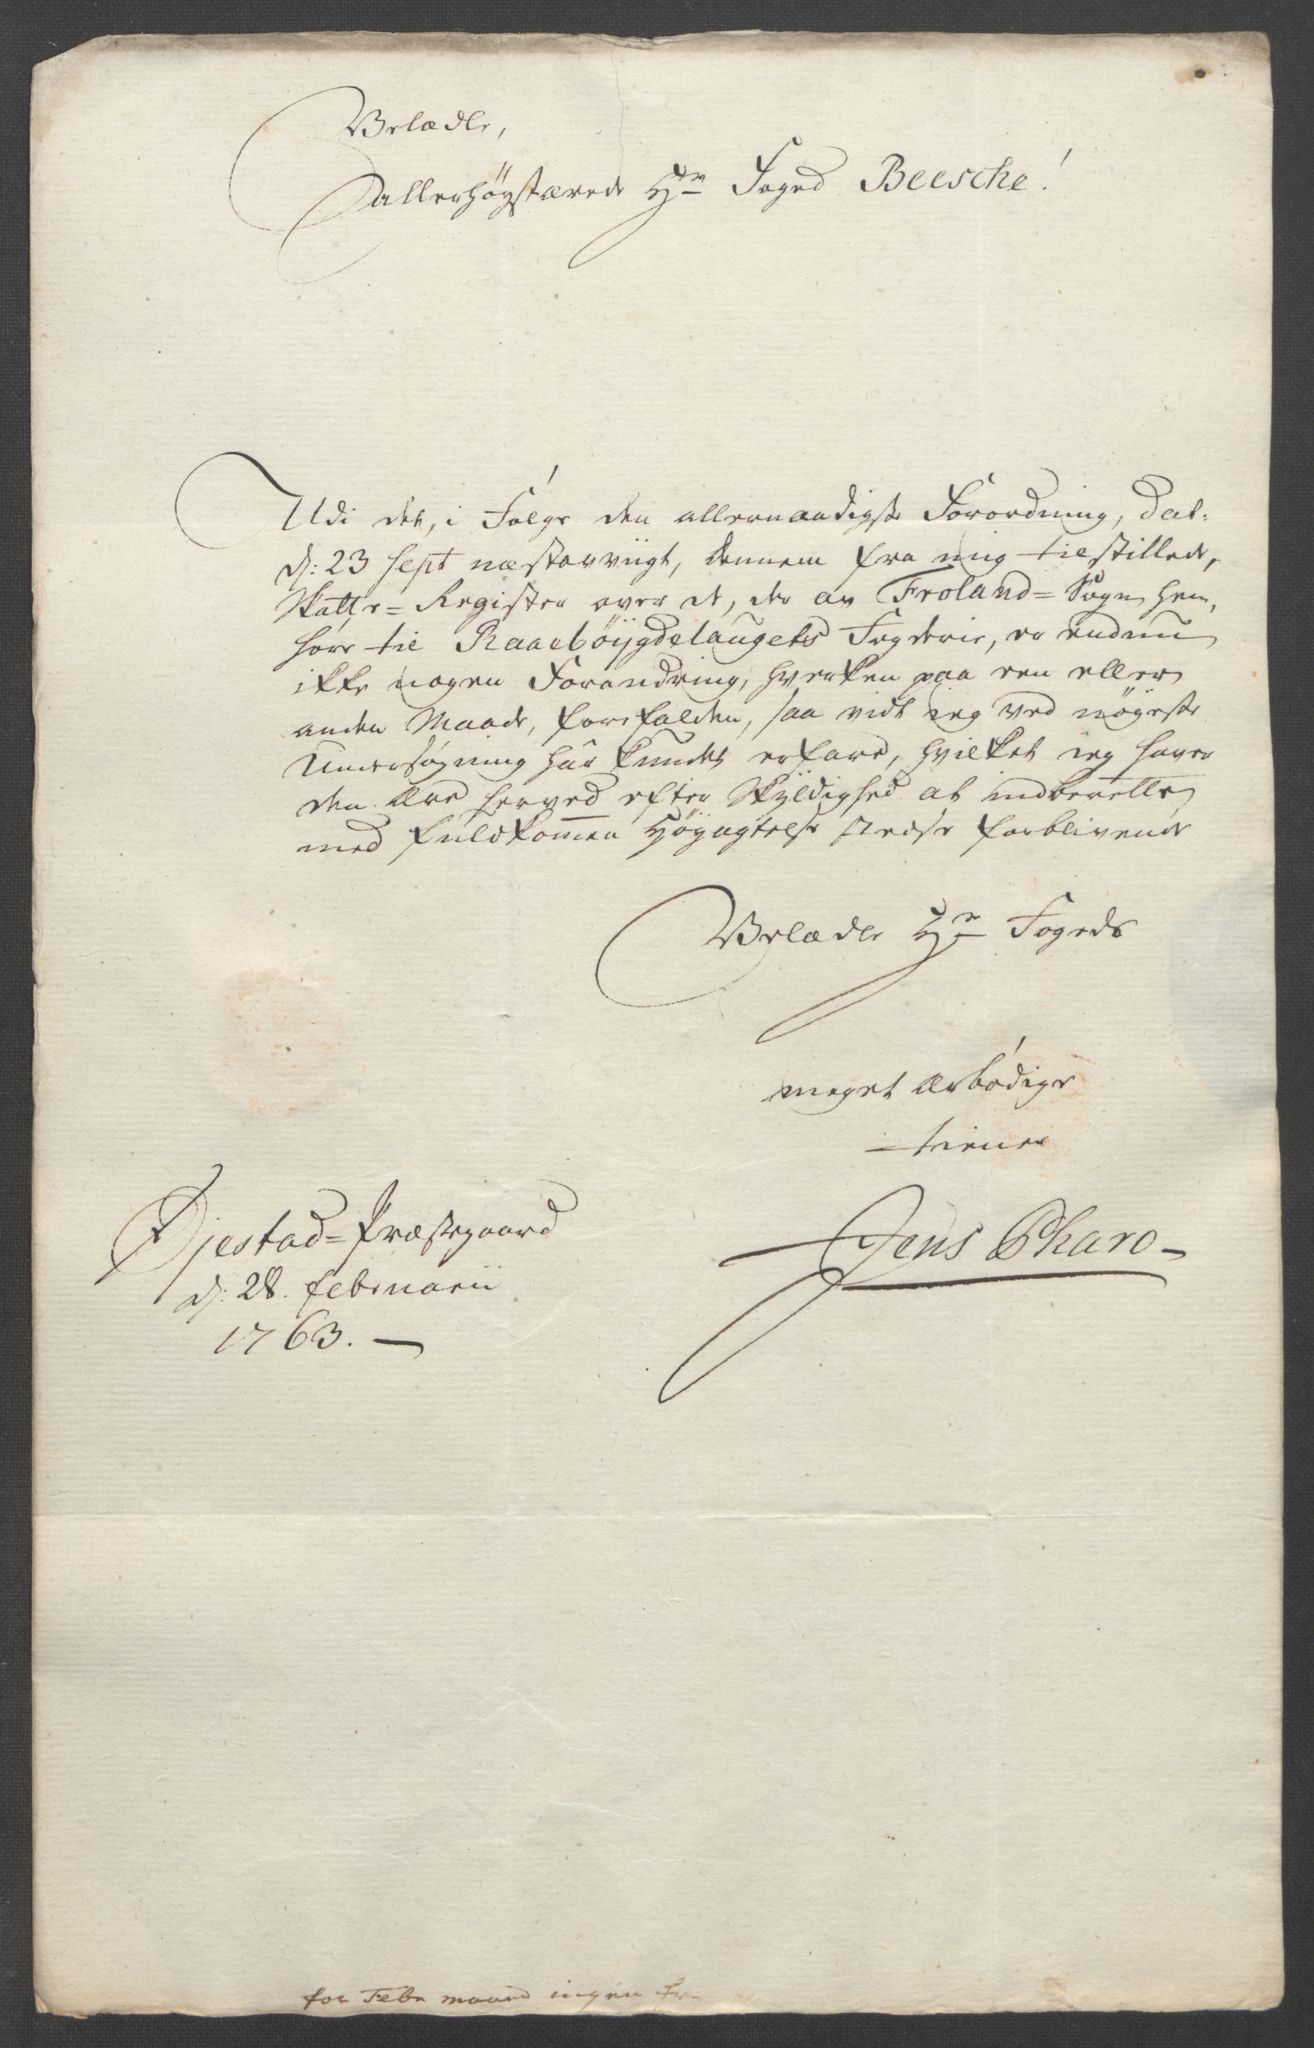 Velædle,
allerhøgstærede Hr Foged Beesche!
Udi det, i Følge den allernaadigste Forordning, dat:
d: 23 Sept næstavvigt, dennem fra mig tilstillede,
Skatte=Register over de, der av Froland=Sogn hen,
høre til Raaebøygdelaugets Fogderie, er endnu
ikke nogen Forandring, hverken paa een eller
anden Maade, forefalden, saa vidt ieg ved nøyeste
Undersøgning har kundet erfare, hvilket ieg haver
den Ære herved efter Skyldighed at indberette
med fuldkom̅en Høyagtelse stedse forblivende
Velædle Hr Fogeds
meget ærbødige
tiener
Jens Pharo
Øjestad=Præstegaard
d: 28. februarii
1763.
for Febr maaned ingen